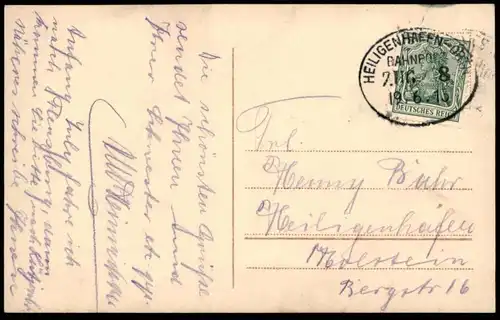 Die schönsten Grüße
sendet Ihnen und
Ihrer Schwester
Anfang July fahre ich
nach Flensburg, dann
kommen Sie bitte
Näheres schreibe Ihnen
HEILIGENHAFEN-
BAHNPOST
ZUG 8
19 6
DEUTSCHES REICH
Frl.
Henny Buhr
Heiligenhafen
Holstein
Bergstr 16